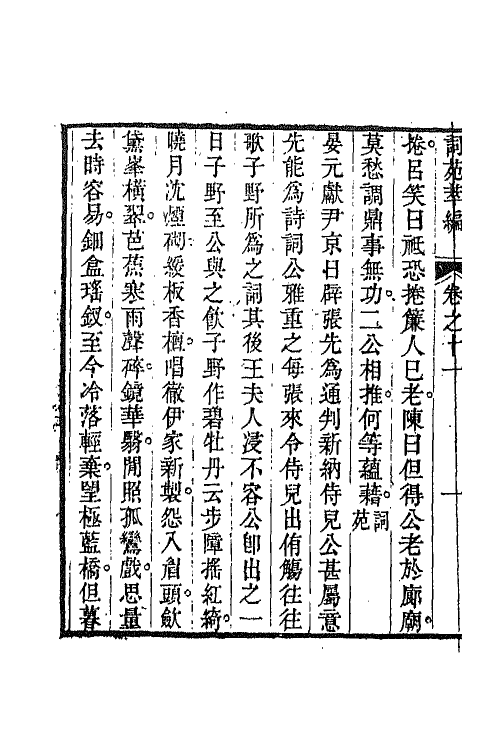 詞苑萃編 卷之十一 一
捲呂笑曰祗恐捲簾人已老陳曰但得公老於廊廟
莫愁調鼎事無功二公相推何等蘊藉詞苑
晏元獻尹京日辟張先為通判新納侍兒公甚屬意
先能為詩詞公雅重之每張來令侍兒出侑觴往往
歌子野所為之詞其後王夫人浸不容公卽出之一
日子野至公與之飲子野作碧牡丹云步障搖紅綺
曉月沈煙砌緩板香檀唱徹伊家新製怨入眉頭斂
黛峯橫翠芭蕉寒雨聲碎鏡華翳閒照孤鸞戲思量
去時容易鈿盒瑤釵至今冷落輕棄望極藍橋但暮